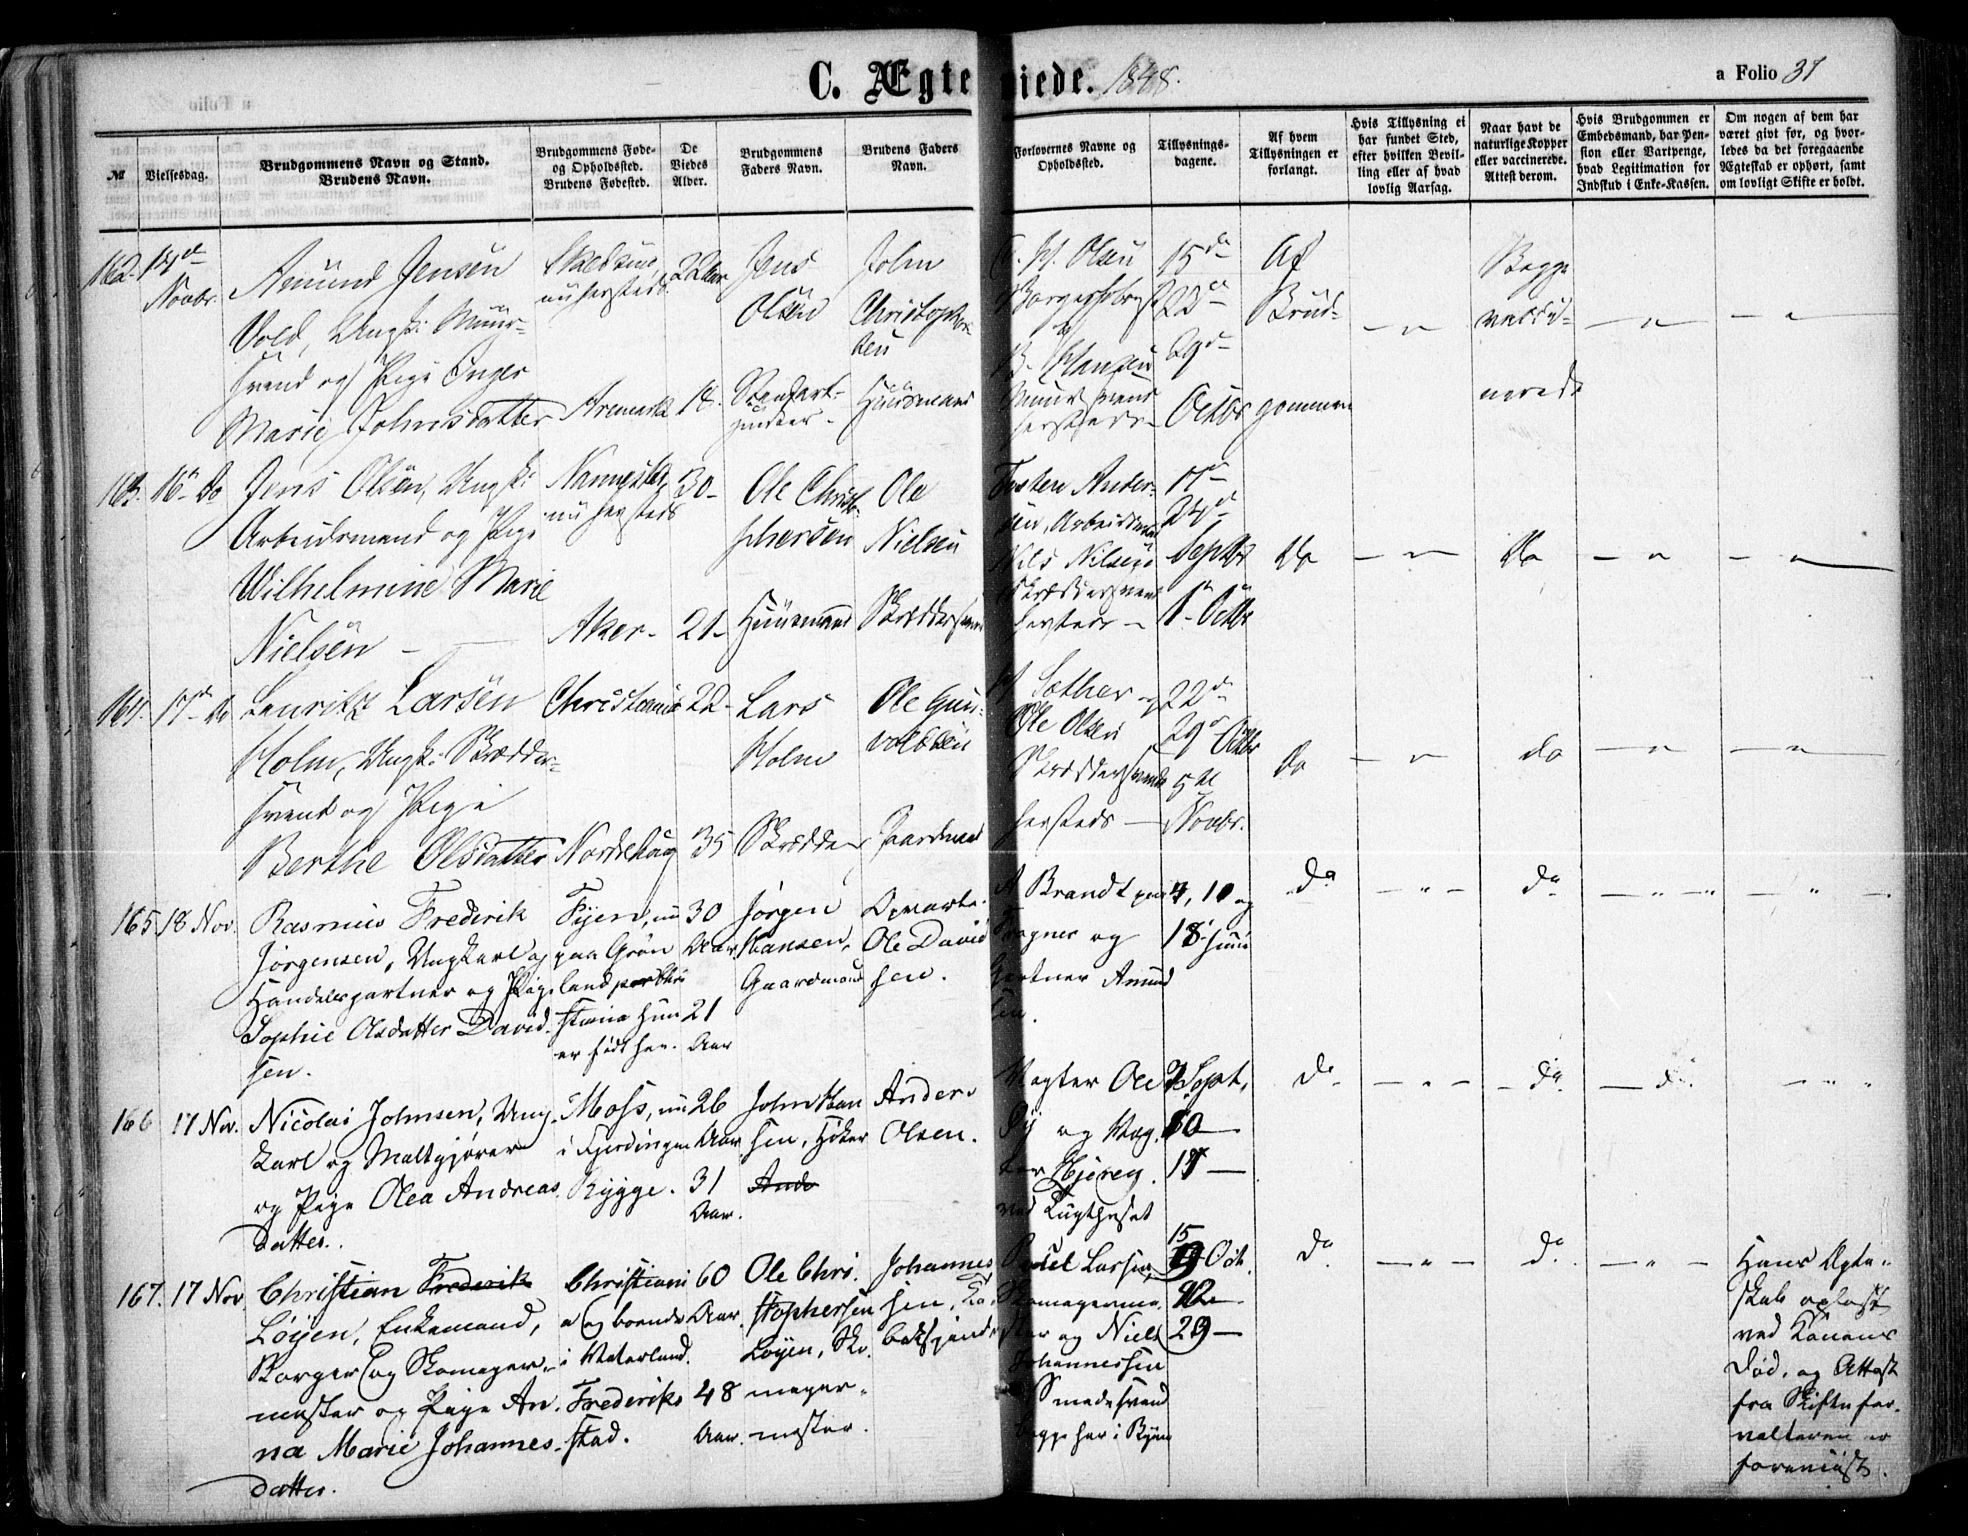 C. Ægteviede. 1848.
a Folio 31
№
Vielsesdag.
Brudgommens Navn og Stand.
Brudens Navn.
Brudgommens Føde-
og Opholdssted.
Brudens Fødested.
De
Viedes
Alder.
Brudgommens
Faders Navn.
Brudens Faders
Navn.
Forlovernes Navne og
Opholdssted.
Tillysnings-
dagene.
Af hvem
Tillysningen er
forlangt.
Hvis Tillysning ei
har fundet Sted,
efter hvilken Bevil-
ling eller af hvad
lovlig Aarsag.
Naar havt de
naturlige Kopper
eller vaccinerede.
Attest derom.
Hvis Brudgommen er
Embedsmand, har Pen-
sion eller Vartpenge,
hvad Legitimation for
Indskud i Enke-Kassen.
Om nogen af dem har
været givt før, og hvor-
ledes da det foregaaende
Ægteskab er ophørt, samt
om lovligt Skifte er holdt.
162.
Novbr.
Amund Jensen
Vold, Ungk: Muur-
svend og Pige Inger
Marie Johnsdatter
nu hersteds
Aremark
22 Aar
18.
Jens
Olsen
John
Christopher-
sen
Huusmand
Olsen
B. Hansen
Muursvend
hersteds
15de
22de
29de
Octbr
Af
Brud-
gommen
Begge
vacci-
nerede
163.
16 do
Jens Olsen, Ungk:
Arbeidsmand og Pige
Wilhelmine Marie
Nielsen
nu hersteds
Aker
30
21
Ole Christo-
phersen
Huusmand
Ole
Nielsen
Skræddersvend
Torsten Ander-
sen, Arbeidsmand
Nils Nilsen
Skræddersvend
hersteds
17de
24de
Septbr
1ste Octbr
Do
Do
164.
17de do
Lauritz Larsen
Holm, Ungk: Skrædder-
svend og Pige
Berthe Olsdatter
Christiania
Nordrehaug
22
35
Lars
Holm
Skrædder
Ole Gun-
voldsen
Gaardmand
Sæther og
Ole Olsen
Skræddersvende
hersteds
22de
29de Octbr
5te
Novbr.
do
do
165.
18 Nov.
Rasmus Frederik
Jørgensen, Ungkarl og
Handelsgartner og Pige
Sophie Olsdatter David-
sen.
Fyen, nu
paa Grøn
land ved Chri
stiania Hun
er født her.
30
Aar
21
Aar
Jørgen
Hansen,
Gaardmand
Opvarter
Ole David
sen.
A Brandt paa
Tragner og
Gartner Amund
sen.
4, 10 og
18 Juni
Do
Do
166
17 Nov.
Nicolai Johnsen, Ung-
karl og Maltgjører
og Pige Olea Andreas
datter.
Moss, nu
i Fjerdingen
Rygge.
26
Aar
31
Aar.
John Han
sen, Høker
Anders
Olsen.
Vægter Ole
og Væg.
ter Hjorey.
ved Tugthuset
3 Sept.
10
17
Do
Do
167.
17 Nov
Christian Frederik
Løyen, Enkemand,
Borger og Skomager-
mester og Pige An-
na Marie Johannes-
datter.
Christiani
a og boende
i Vaterland.
Frederiks
stad.
60
Aar.
48
Aar.
Ole Chri-
stophersen
Løyen, Sko-
mager-
mester.
Johannes
sen,
Poul Larsen
Skomagerme-
ster og Niels
Johannessen
Smedesvend
begge her i Byen
15 Oct.
22
29
Do
Do
Hans Ægte-
skab opløst
ved Konens
Død, og Attest
fra Skiftefor-
valteren er
foreviist.